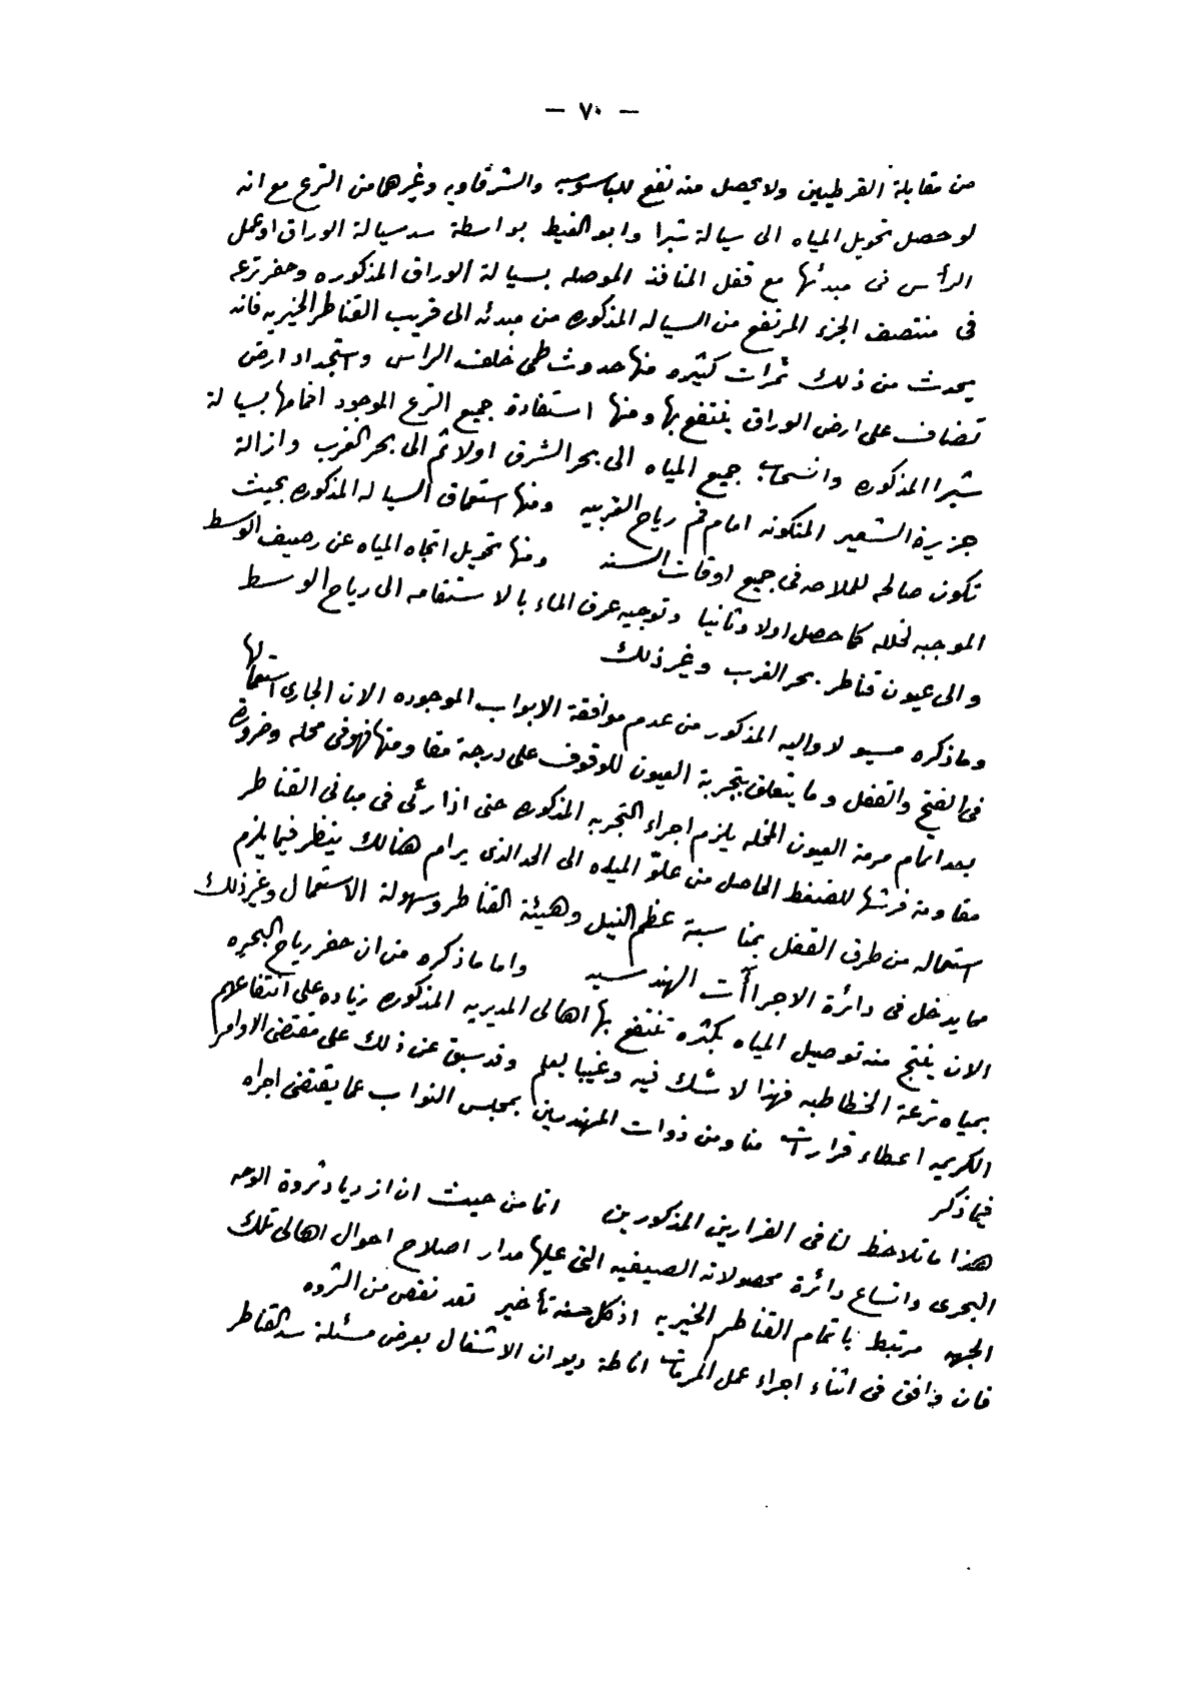 — ٧٠ —
من مقابلة القرطيين ولا يحصل منه نفع للباسوسيه والشرقاويه وغيرها من الترع مع انه
لو حصل تحويل المياه الى سيالة شبرا وابو الغيط بواسطة سد سيالة الوراق او عمل
الرأس فى مبدئها مع قفل المنافذ الموصله بسيالة الوراق المذكوره وحفر ترعه
فى منتصف الجزء المرتفع من السياله المذكوره من مبدئه الى قريب القناطر الخيريه فانه
يحدث من ذلك ثمرات كثيره منها حدوث طمى خلف الراس واستجداد ارض
تضاف على ارض الوراق ينتفع بها ومنها استفادة جميع الترع الموجود افمامها بسيالة
شبرا المذكوره وانسحاب جميع المياه الى بحر الشرق اولا ثم الى بحر الغرب وازالة
جزيرة الشعير المتكونه امام فم رياح الغربيه ومنها استعماق السياله المذكوره بحيث
تكون صالحه للملاحه فى جميع اوقات السنه ومنها تحويل اتجاه المياه عن رصيف الوسط
الموجبه لخلله كما حصل اولا وثانيا وتوجيه عرق الماء بالاستقامه الى رياح الوسط
والى عيون قناطر بحر الغرب وغير ذلك
وما ذكره مسيو لاواليه المذكور من عدم موافقة الابواب الموجوده الان الجارى استعمالها
فى الفتح والقفل وما يتعلق بتجربة العيون للوقوف على درجة مقاومتها فهو فى محله وضرورة
بعد اتمام مرمة العيون المخله يلزم اجراء التجربه المذكوره حتى اذا رئى فى مبانى القناطر
مقاومة فرشها للضغط الحاصل من علوّ المياه الى الحد الذى يرام هنالك ينظر فيما يلزم
استعماله من طرق القفل بمناسبة عظم النيل وهيئة القناطر وسهولة الاستعمال وغير ذلك
مما يدخل فى دائرة الاجراآت الهندسيه واما ما ذكره من ان حفر رياح البحيره
الان ينتج منه توصيل المياه بكثره تنتفع بها اهالى المديريه المذكوره زياده على انتفاعهم
بمياه ترعة الخطاطبه فهذا لا شك فيه وغيبا يعلم وقد سبق عن ذلك على مقتضى الاوامر
الكريمه اعطاء قرارات منا ومن ذوات المهندسين بمجلس النواب عما يقتضى اجراه
فيما ذكر
هذا ما تلاحظ لنا فى القرارين المذكورين انما من حيث ان ازدياد ثروة الوجه
البحرى واتساع دائرة محصولاته الصيفيه التى عليها مدار اصلاح احوال اهالى تلك
الجهه مرتبط باتمام القناطر الخيريه اذ كل سنة تأخير تعد نقص من الثروه
فان وافق فى اثناء اجراء عمل المرمات اناطة ديوان الاشغال بعرض مسئلة سد القناطر